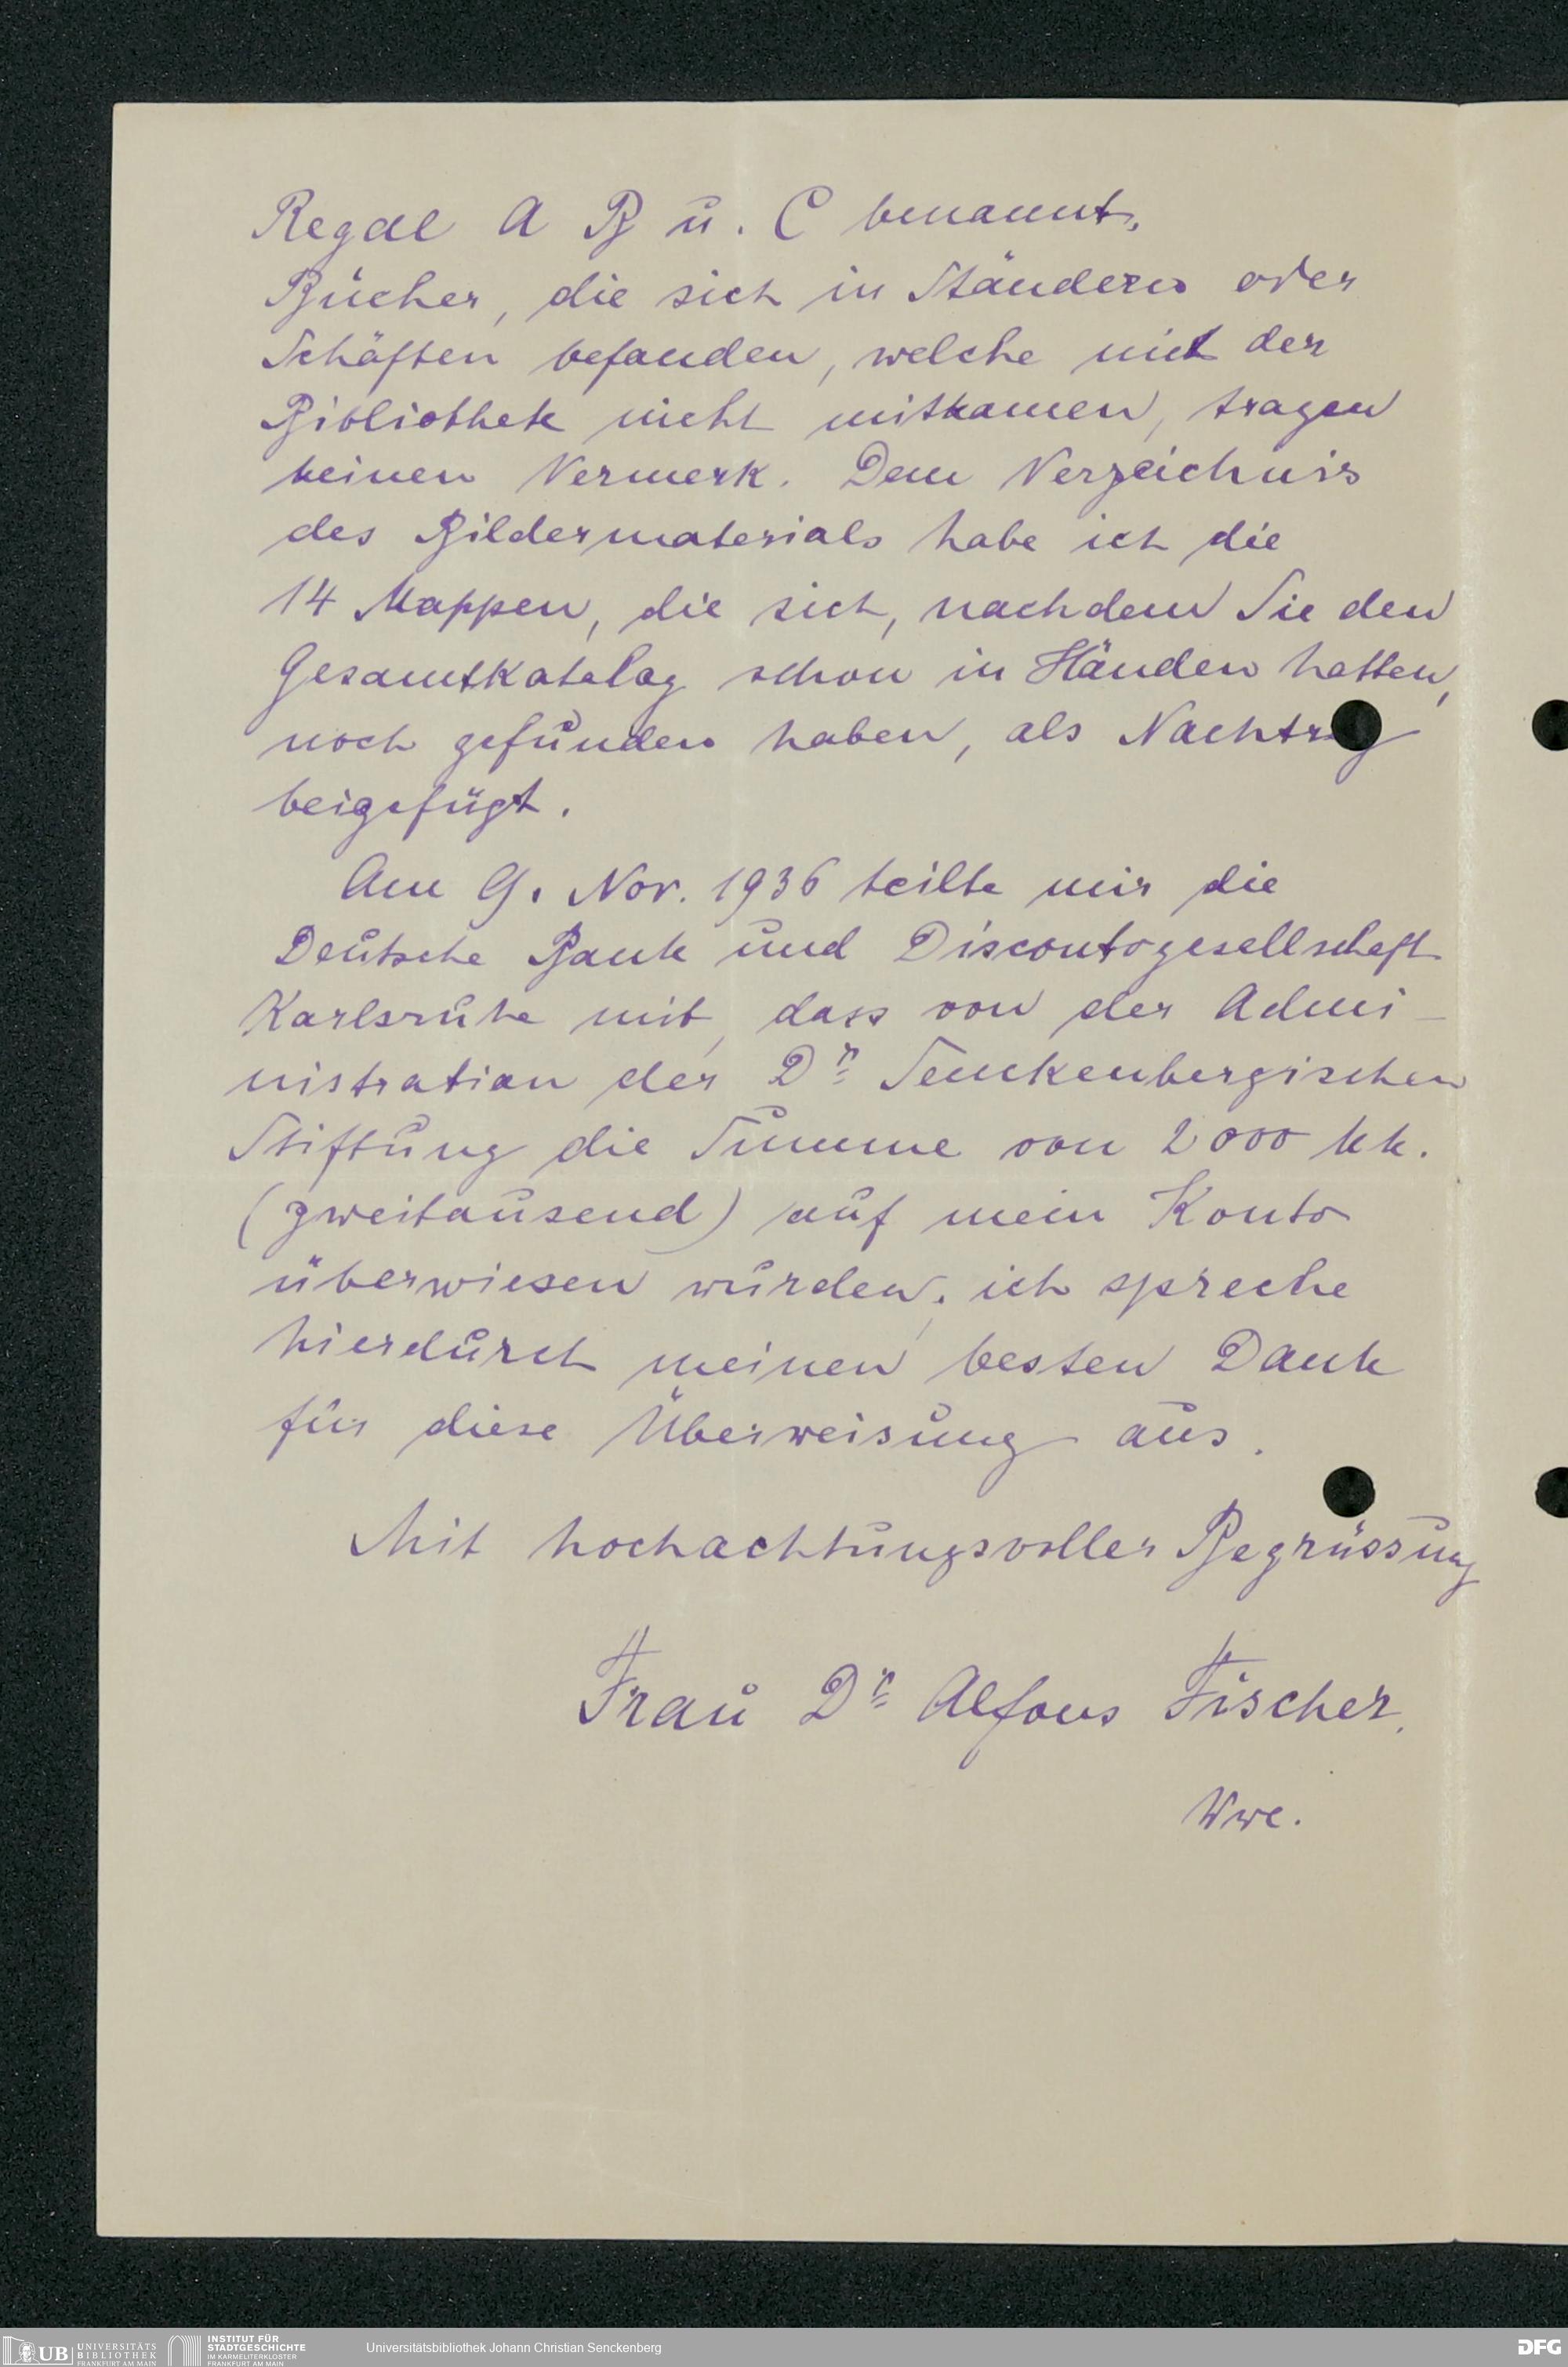 Regal A B u. C benannt.
Bücher, die sich in Ständern oder
Schäften befanden, welche mit der
Bibliothek nicht mitkamen, tragen
keinen Vermerk. Dem Verzeichnis
des Bildermaterials habe ich die
14 Mappen, die sich, nachdem Sie den
Gesamtkatalog schon in Händen hatten,
noch gefunden haben, als Nachtrag
beigefügt.
Am 9. Nov. 1936 teilte mir die
Deutsche Bank und Discontogesellschaft
Karlsruhe mit, dass von der Admi-
nistration der Dr. Senckenbergischen
Stiftung die Summe von 2000 Mk.
(zweitausend) auf mein Konto
überwiesen wurden, ich spreche
hierdurch meinen besten Dank
für diese Überweisung aus.
Mit hochachtungsvoller Begrüssung
Frau Dr. Alfons Fischer.
Wwe.
UB UNIVERSITÄTS BIBLIOTHEK FRANKFURT AM MAIN
INSTITUT FÜR STADTGESCHICHTE IM KARMELITERKLOSTER FRANKFURT AM MAIN
Universitätsbibliothek Johann Christian Senckenberg
DFG